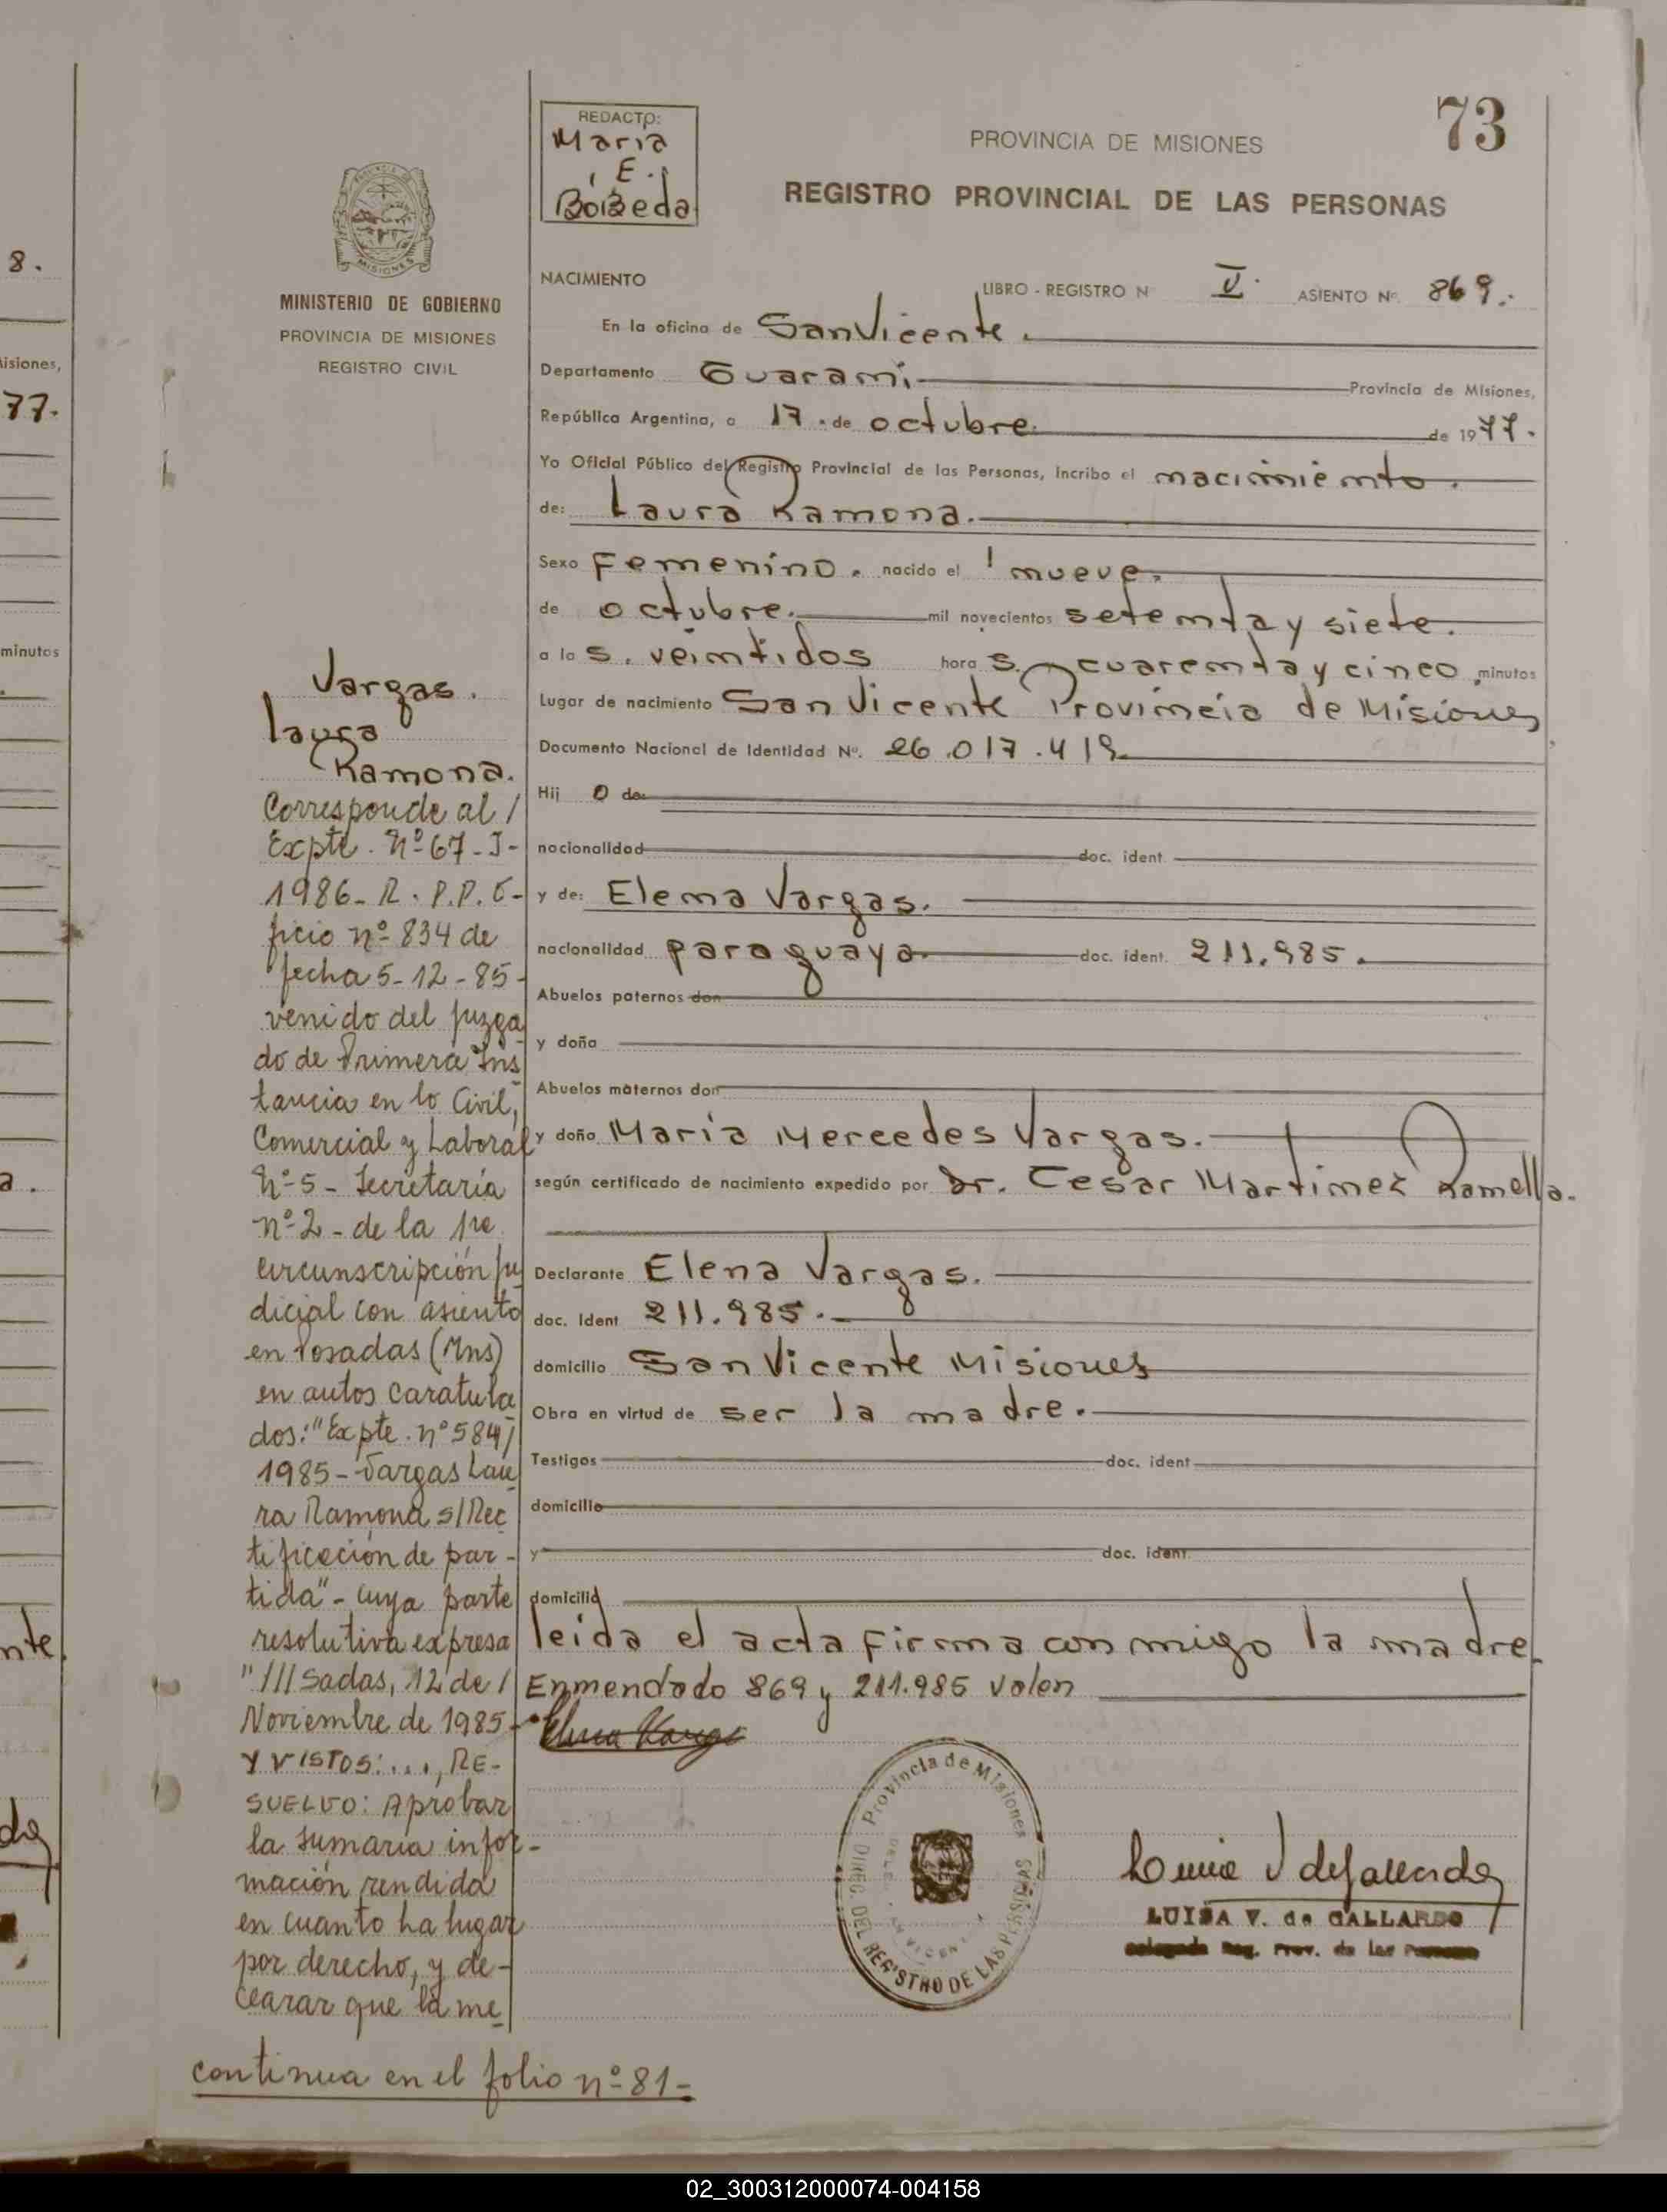 8.
isiones,
77.
minutos
a.
nte.
REDACTO:
Maria
E.
BoBeda
PROVINCIA DE MISIONES
73
REGISTRO PROVINCIAL DE LAS PERSONAS
MISIONES
MINISTERIO DE GOBIERNO
PROVINCIA DE MISIONES
REGISTRO CIVIL
NACIMIENTO LIBRO - REGISTRO N V. ASIENTO Nº. 869.
En la oficina de San Vicente.
Departamento Guaraní Provincia de Misiones,
República Argentina, a 17 de octubre de 1977.
Yo Oficial Público del Registro Provincial de las Personas, incribo el nacimiento.
de: Laura Ramona.
Sexo Femenino. nacido el nueve.
de octubre. mil novecientos setenta y siete.
a la s. veintidos hora s. cuarenta y cinco minutos
Lugar de nacimiento San Vicente Provincia de Misiones
Documento Nacional de Identidad Nº. 26.017.419
Hij o de:
nacionalidad doc. ident.
y de: Elena Vargas.
nacionalidad paraguaya doc. ident. 211.985.
Abuelos paternos don
y doña
Abuelos maternos don
y doña Maria Mercedes Vargas.
según certificado de nacimiento expedido por Dr. Cesar Martinez Ramella.
Declarante Elena Vargas.
doc. Ident 211.985.
domicilio San Vicente Misiones
Obra en virtud de ser la madre.
Testigos doc. ident
domicilio
y doc. ident.
domicilio
leida el acta firma con migo la madre.
Enmendado 869 y 211.985 valen
Elena Vargas
Provincia de Misiones
DIREC. DEL REGISTRO DE LAS PERSONAS
LUISA V. de GALLARDO
Delegada Reg. Prov. de las Personas
Vargas.
Laura
Ramona.
Corresponde al /
Expte. Nº 67-J-
1986-R.P.P. O-
ficio nº 834 de
fecha 5-12-85-
venido del Juzga
do de Primera Ins
tancia en lo Civil,
Comercial y Laboral
Nº 5 - Secretaría
nº 2 - de la 1re
circunscripción Ju
dicial con asiento
en Posadas (Mns)
en autos caratula
dos: "Expte. nº 584/
1985 - Vargas Lau
ra Ramona s/ Rec
tificación de par-
tida" - cuya parte
resolutiva expresa
"///sadas, 12 de /
Noviembre de 1985-
Y VISTOS: ..., RE-
SUELVO: Aprobar
la sumaria infor-
mación rendida
en cuanto ha lugar
por derecho, y de-
clarar que la me
continua en el folio nº 81-
02_300312000074-004158